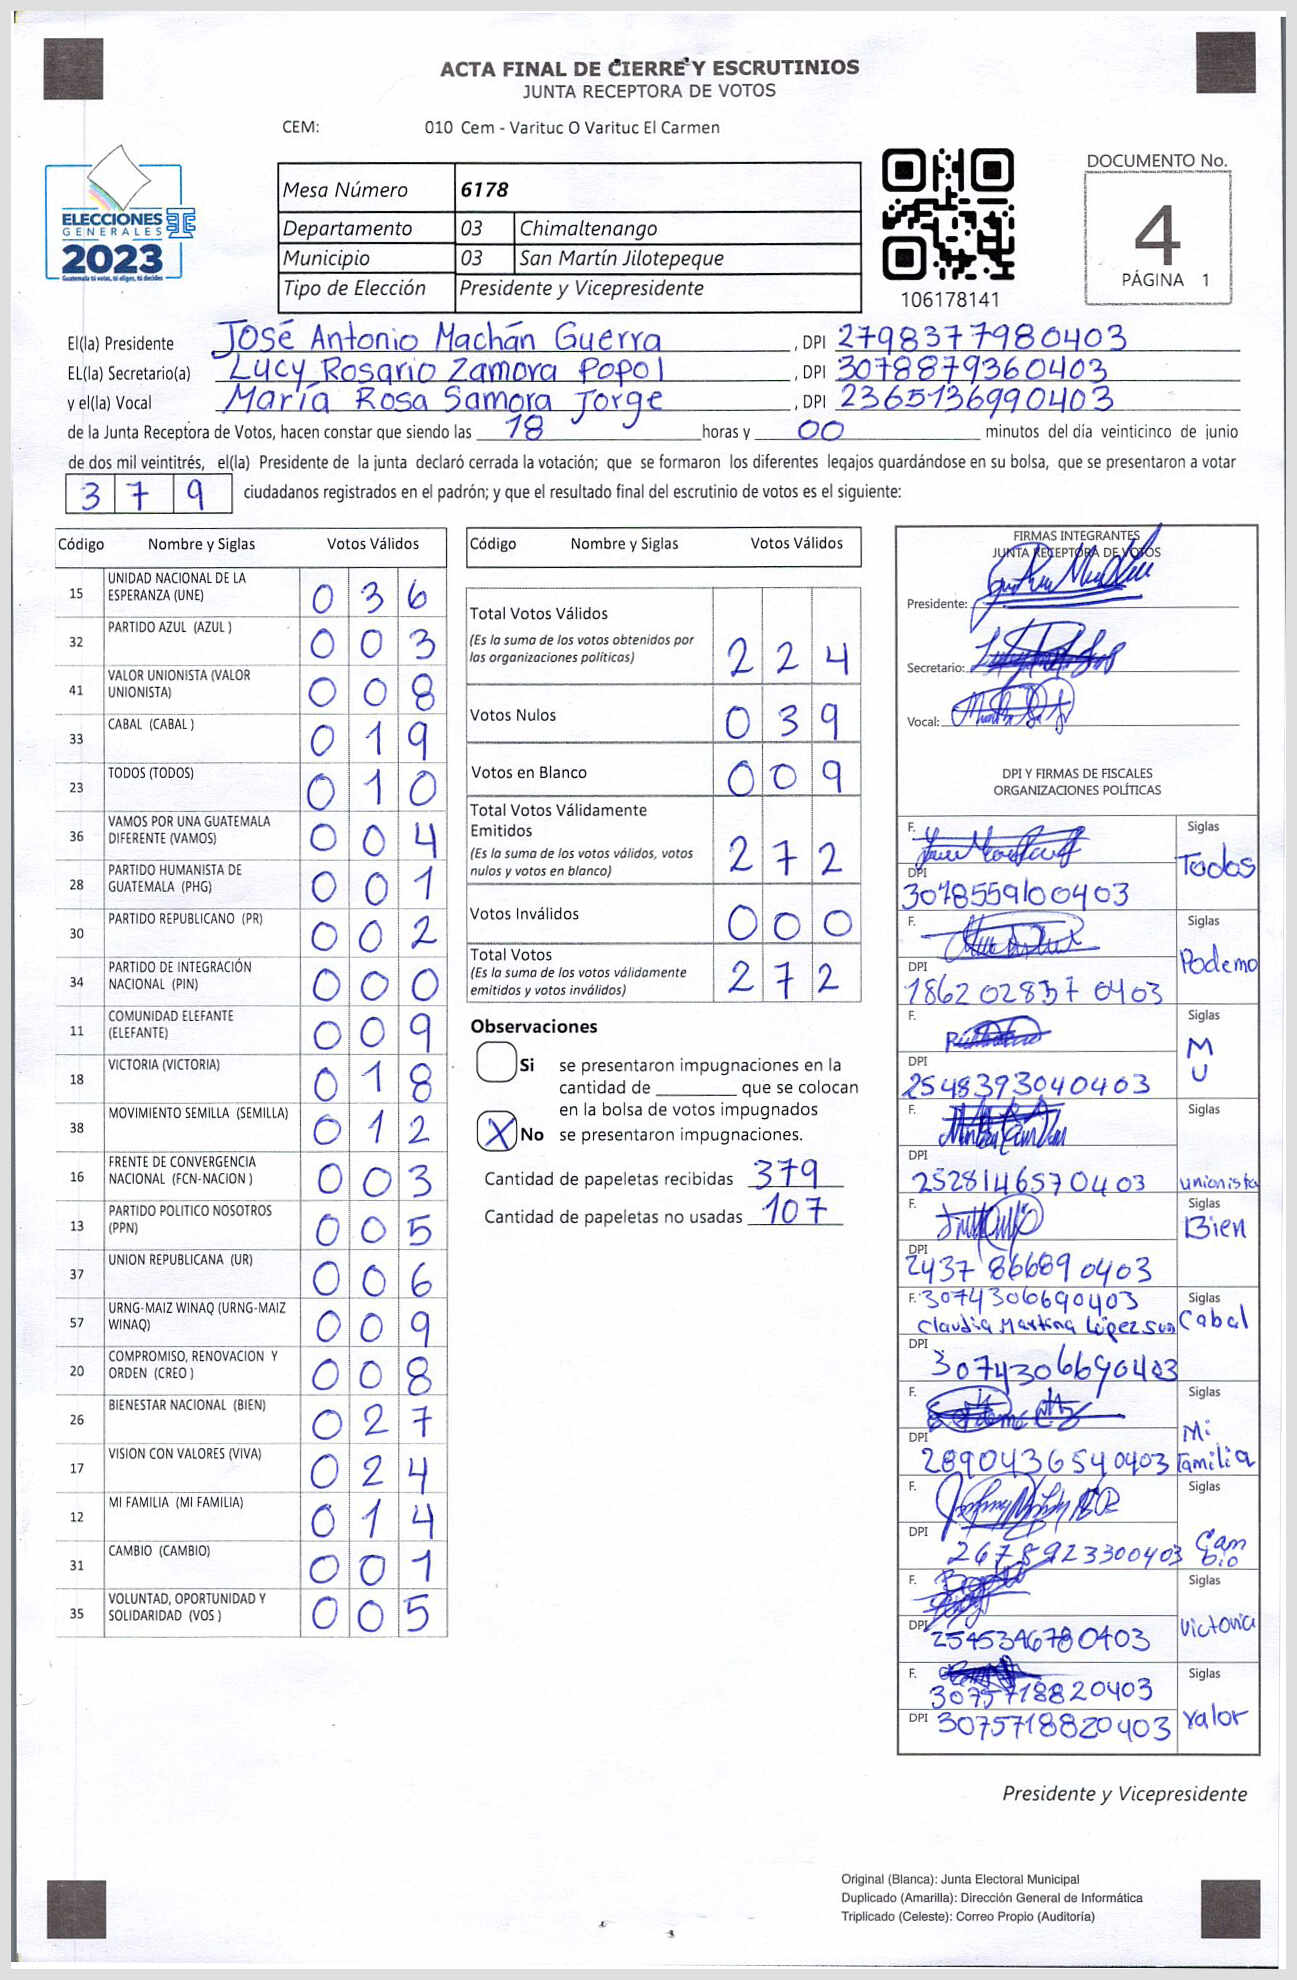 ACTA FINAL DE CIERRE Y ESCRUTINIOS
JUNTA RECEPTORA DE VOTOS
CEM: 010 Cem - Varituc O Varituc El Carmen
ELECCIONES
GENERALES
2023
Guatemala tú votas, tú eliges, tú decides
Mesa Número 6178
Departamento 03 Chimaltenango
Municipio 03 San Martín Jilotepeque
Tipo de Elección Presidente y Vicepresidente
106178141
DOCUMENTO No.
4
PÁGINA 1
El(la) Presidente José Antonio Machán Guerra , DPI 2798377980403
EL(la) Secretario(a) Lucy Rosario Zamora Popol , DPI 3078879360403
y el(la) Vocal María Rosa Samora Jorge , DPI 2365136990403
de la Junta Receptora de Votos, hacen constar que siendo las 18 horas y 00 minutos del día veinticinco de junio
de dos mil veintitrés, el(la) Presidente de la junta declaró cerrada la votación; que se formaron los diferentes legajos guardándose en su bolsa, que se presentaron a votar
3 7 9 ciudadanos registrados en el padrón; y que el resultado final del escrutinio de votos es el siguiente:
Código Nombre y Siglas Votos Válidos
15 UNIDAD NACIONAL DE LA
ESPERANZA (UNE) 0 3 6
32 PARTIDO AZUL (AZUL ) 0 0 3
41 VALOR UNIONISTA (VALOR
UNIONISTA) 0 0 8
33 CABAL (CABAL ) 0 1 9
23 TODOS (TODOS) 0 1 0
36 VAMOS POR UNA GUATEMALA
DIFERENTE (VAMOS) 0 0 4
28 PARTIDO HUMANISTA DE
GUATEMALA (PHG) 0 0 1
30 PARTIDO REPUBLICANO (PR) 0 0 2
34 PARTIDO DE INTEGRACIÓN
NACIONAL (PIN) 0 0 0
11 COMUNIDAD ELEFANTE
(ELEFANTE) 0 0 9
18 VICTORIA (VICTORIA) 0 1 8
38 MOVIMIENTO SEMILLA (SEMILLA) 0 1 2
16 FRENTE DE CONVERGENCIA
NACIONAL (FCN-NACION ) 0 0 3
13 PARTIDO POLITICO NOSOTROS
(PPN) 0 0 5
37 UNION REPUBLICANA (UR) 0 0 6
57 URNG-MAIZ WINAQ (URNG-MAIZ
WINAQ) 0 0 9
20 COMPROMISO, RENOVACION Y
ORDEN (CREO ) 0 0 8
26 BIENESTAR NACIONAL (BIEN) 0 2 7
17 VISION CON VALORES (VIVA) 0 2 4
12 MI FAMILIA (MI FAMILIA) 0 1 4
31 CAMBIO (CAMBIO) 0 0 1
35 VOLUNTAD, OPORTUNIDAD Y
SOLIDARIDAD (VOS ) 0 0 5
Código Nombre y Siglas Votos Válidos
Total Votos Válidos
(Es la suma de los votos obtenidos por
las organizaciones políticas) 2 2 4
Votos Nulos 0 3 9
Votos en Blanco 0 0 9
Total Votos Válidamente
Emitidos
(Es la suma de los votos válidos, votos
nulos y votos en blanco) 2 7 2
Votos Inválidos 0 0 0
Total Votos
(Es la suma de los votos válidamente
emitidos y votos inválidos) 2 7 2
Observaciones
Si se presentaron impugnaciones en la
cantidad de ________ que se colocan
en la bolsa de votos impugnados
X No se presentaron impugnaciones.
Cantidad de papeletas recibidas 379
Cantidad de papeletas no usadas 107
FIRMAS INTEGRANTES
JUNTA RECEPTORA DE VOTOS
Presidente:
Secretario:
Vocal:
DPI Y FIRMAS DE FISCALES
ORGANIZACIONES POLÍTICAS
F. Siglas
Todos
DPI
3078559100403
F. Siglas
Podemo
DPI
1862 02837 0403
F. Siglas
M
U
DPI
2548393040403
F. Siglas
DPI
2528146570403 unionista
F. Siglas
Bien
DPI
2437 86689 0403
F. 3074306690403 Siglas
Claudia Martina López Cabal
DPI
3074306690403
F. Siglas
Mi
DPI
2890436540403 familia
F. Siglas
Cam
DPI
2678923300403 bio
F. Siglas
Victoria
DPI
2545346780403
F. Siglas
3075718820403
DPI 3075718820403 Valor
Presidente y Vicepresidente
Original (Blanca): Junta Electoral Municipal
Duplicado (Amarilla): Dirección General de Informática
Triplicado (Celeste): Correo Propio (Auditoría)